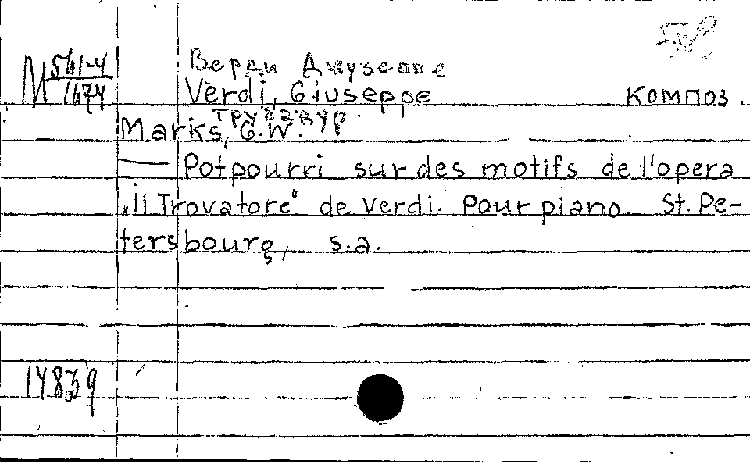 М 561-4
1674
Верди Джузеппе
Verdi, Giuseppe
композ.
Трубадур
Marks, G.W.
— Potpourri sur des motifs de l'opera
„il Trovatore" de Verdi. Pour piano. St. Pe-
tersbourg, s.a.
14839